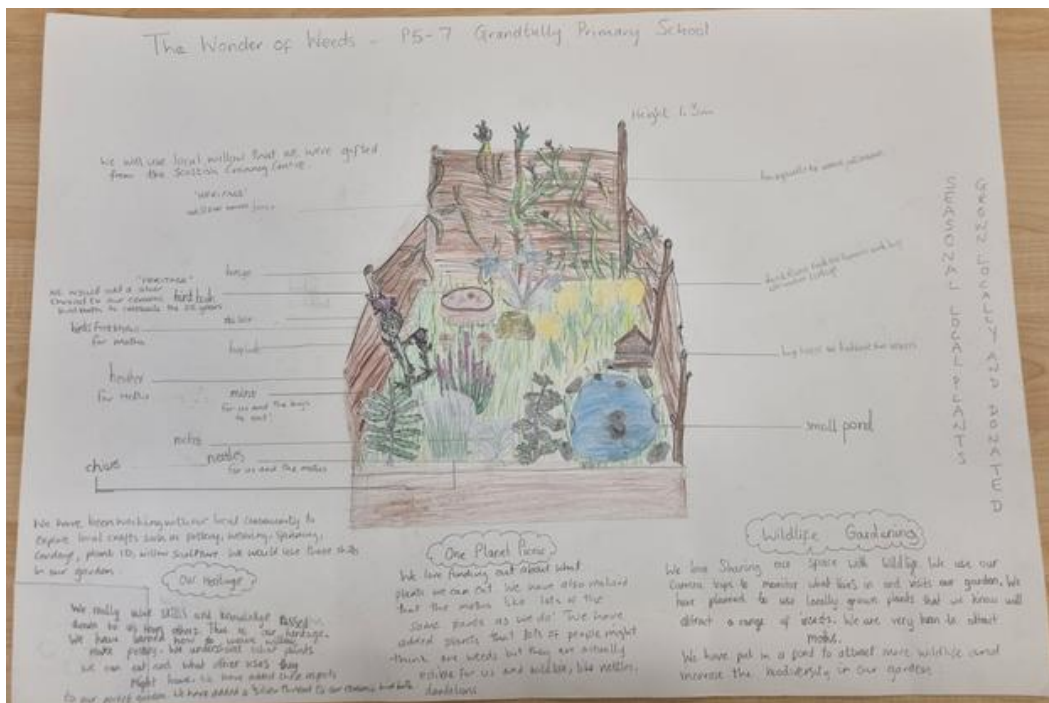 The Wonder of Weeds - P5-7 Grandtully Primary School
Height 1.3m
We will use local willow that we were gifted
from the Scottish Crannog Centre.
"HERITAGE"
"HERITAGE"
we would add a silver
thread to our ceramic
bird bath to celebrate the 25 years
bird bath
for moths
heather
for moths
mint
for us and the bugs
to eat!
nettles
for us and the moths
chives
bug hotel
small pond
SEASONAL LOCAL PLANTS
GROWN LOCALLY AND DONATED
We have been working with our local community to
explore local crafts such as pottery, weaving, spinning,
cordage, plant ID, willow sculpture. We would use these skills
in our garden.
Our Heritage
We really want skills and knowledge passed
down to us from others. This is our heritage.
We have learned how to weave willow,
make pottery. We understand what plants
we can eat and what other uses they
might have. We have added these aspects
to our garden. We have added a silver thread to our ceramic bird bath
One Planet Picnic
We love finding out about what
plants we can eat. We have also realised
that the moths like lots of the
same plants as we do! We have
added plants that lots of people might
think are weeds but they are actually
edible for us and wildlife, like nettles,
dandelions
Wildlife Gardening
We love sharing our space with wildlife. We use our
camera traps to monitor what lives in and visits our garden. We
have planned to use locally grown plants that we know will
attract a range of We are very keen to attract
moths.
We have put in a pond to attract more wildlife and
increase the biodiversity in our garden